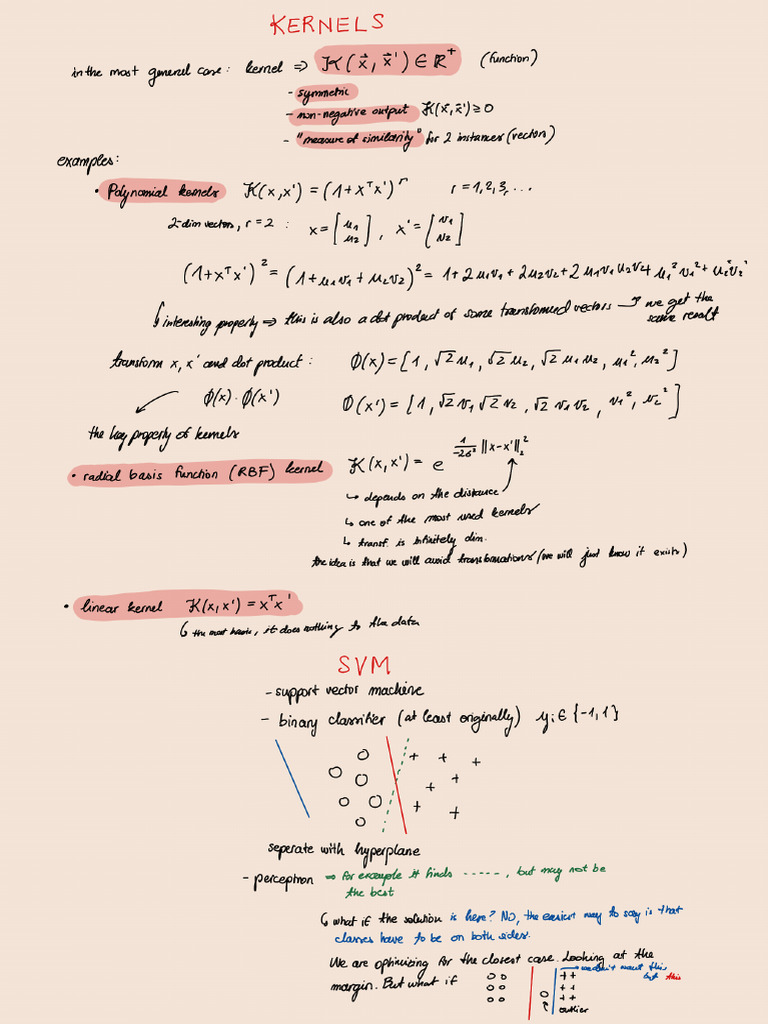 KERNELS
in the most general case: kernel ⇒ K(x⃗, x⃗') ∈ R⁺ (function)
- symmetric
- non-negative output K(x⃗,x⃗') ≥ 0
- "measure of similarity" for 2 instances (vectors)
examples:
• Polynomial kernels K(x,x') = (1+xᵀx')ʳ r = 1,2,3, ...
2-dim vectors, r = 2 : x = [u₁ u₂], x' = [v₁ v₂]
(1+xᵀx')² = (1+u₁v₁ + u₂v₂)² = 1 + 2u₁v₁ + 2u₂v₂ + 2u₁v₁u₂v₂ + u₁²v₁² + u₂²v₂²
↳ interesting property ⇒ this is also a dot product of some transformed vectors → we get the
same result
transform x, x' and dot product : Ø(x) = [1, √2u₁, √2u₂, √2u₁u₂, u₁², u₂²]
Ø(x)·Ø(x') Ø(x') = [1, √2v₁ √2v₂, √2v₁v₂, v₁², v₂²]
the key property of kernels
• radial basis function (RBF) kernel K(x,x') = e^(1/-2σ² ||x-x'||₂²)
↳ depends on the distance
↳ one of the most used kernels
↳ transf. is infinitely dim.
the idea is that we will avoid transformations (we will just know it exists)
• linear kernel K(x,x') = xᵀx'
↳ the most basic, it does nothing to the data
SVM
- support vector machine
- binary classifier (at least originally) yᵢ ∈ {-1,1}
seperate with hyperplane
- perceptron ⇒ for example it finds -----, but may not be
the best
↳ what if the solution is here? NO, the easiest way to say is that
classes have to be on both sides.
We are optimizing for the closest case. Looking at the
margin. But what if
→ wouldn't want this
but this
outlier